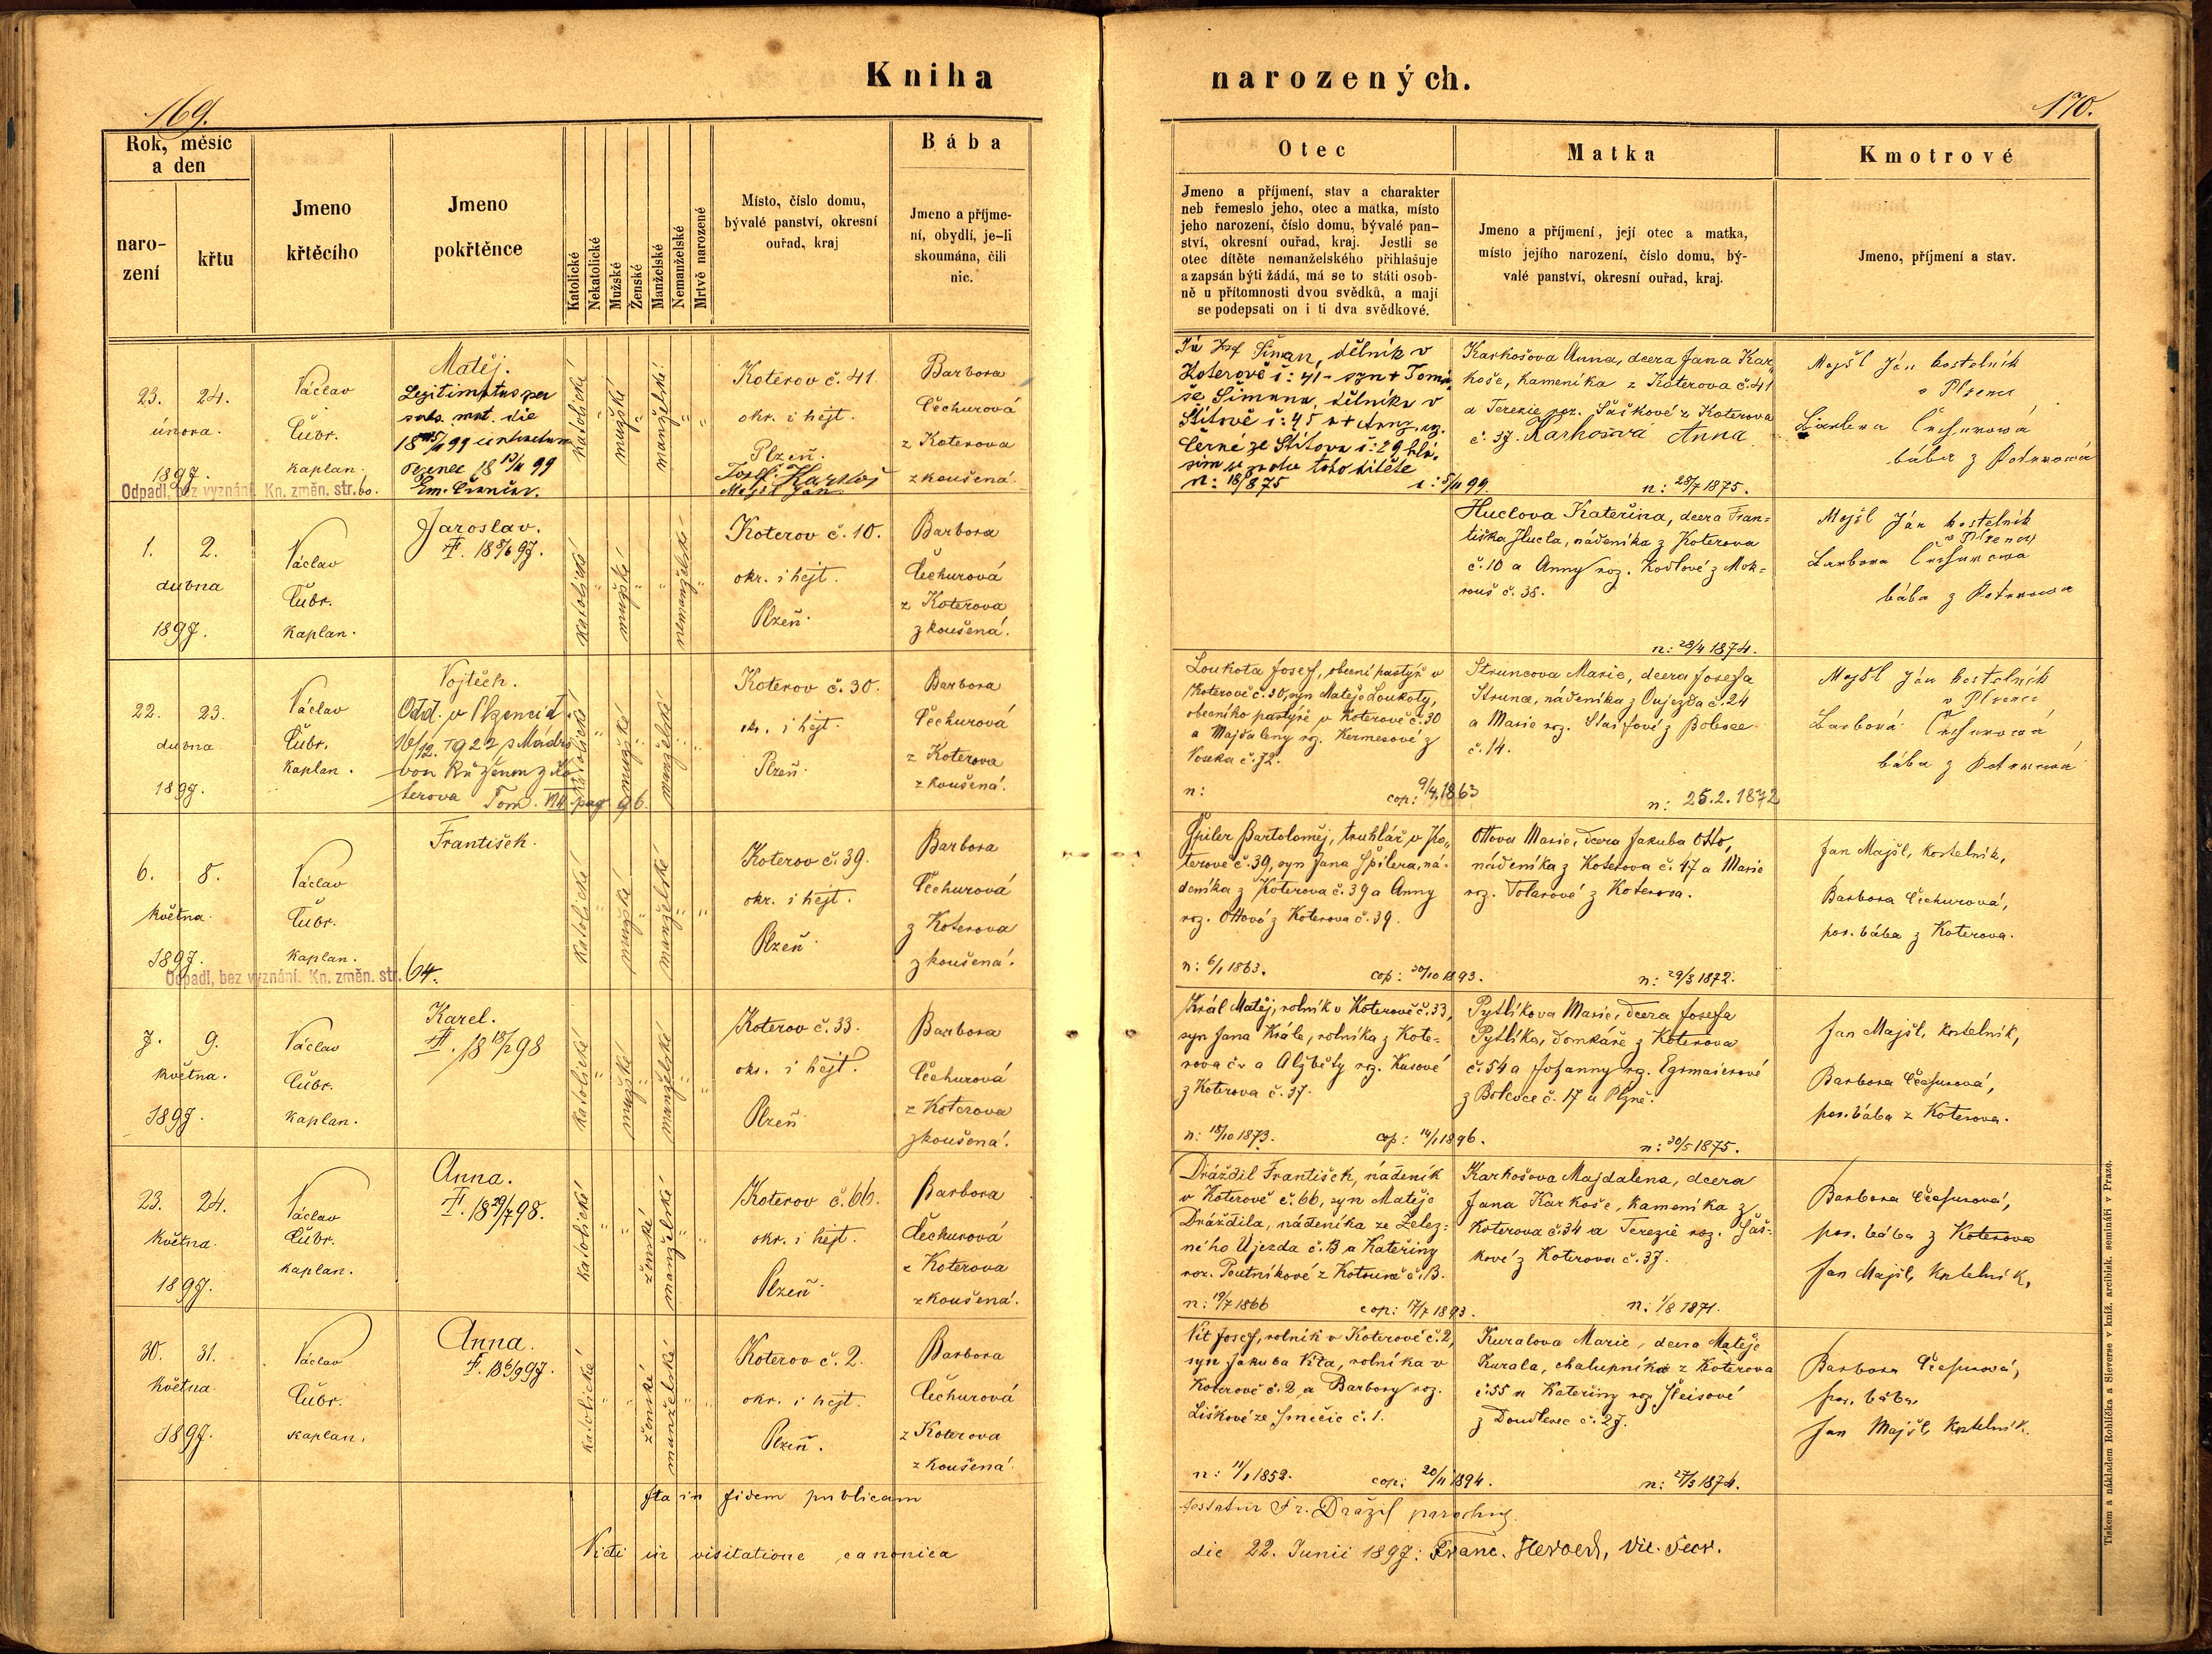 Kniha
narozených.
169.
170.
Rok, měsíc
a den
naro-
zení
křtu
Jmeno
křtěcího
Jmeno
pokřtěnce
Katolické
Nekatolické
Mužské
Ženské
Manželské
Nemanželské
Mrtvě narozené
Místo, číslo domu,
bývalé panství, okresní
ouřad, kraj
Bába
Jmeno a příjme-
ní, obydlí, je-li
skoumána, čili
nic.
Otec
Jmeno a příjmení, stav a charakter
neb řemeslo jeho, otec a matka, místo
jeho narození, číslo domu, bývalé pan-
ství, okresní ouřad, kraj. Jestli se
otec dítěte nemanželského přihlašuje
a zapsán býti žádá, má se to státi osob-
ně u přítomnosti dvou svědků, a mají
se podepsati on i ti dva svědkové.
Matka
Jmeno a příjmení, její otec a matka,
místo jejího narození, číslo domu, bý-
valé panství, okresní ouřad, kraj.
Kmotrové
Jmeno, příjmení a stav.
23. 24.
února.
1897.
Odpadl, bez vyznání. Kn. změn. str. 60.
Václav
Čubr.
kaplan.
Matěj.
Legitimatus per
subs. mat. die
katolické
mužské
manželské
Koterov č. 41
okr. i hejt.
Plzeň.
Josef Karkoš
Majšl Jan
Barbora
Čechurová
z Koterova
zkoušená.
Já Josef Šiman, dělník v
Koterově č: 41 - syn + Tomá-
še Šimana, dělníka v
Štítově č: 45 a + Anny roz.
Černé ze Štítova č: 29 hlá-
sím se za otce toho dítěte
Karkošova Anna, dcera Jana Kar-
koše, kameníka z Koterova č. 41
a Terezie roz. Šaškové z Koterova
č. 37. Karkošová Anna
n: 28/7 1875.
Majšl Ján kostelník
v Plzenci
Barbora Čechurová
bába z Koterova
1. 2.
dubna
1897.
Václav
Čubr.
kaplan.
Jaroslav.
katolické
mužské
nemanželské
Koterov č. 10.
okr. i hejt.
Plzeň.
Barbora
Čechurová
z Koterova
zkoušená.
Huclova Kateřina, dcera Fran-
tiška Hucla, nádeníka z Koterova
č. 10 a Anny roz. Kodlové z Mok-
rouš č. 38.
n: 28/4 1874.
Majšl Ján kostelník
v Plzenci
Barbora Čechurova
bába z Koterova
22. 23.
dubna
1897.
Václav
Čubr.
kaplan.
Vojtěch.
Odd. v Plzenci d.
16/12. 1922 s
Růženou z Ko
terova Tom. VII. pag 96.
katolické
mužské
manželské
Koterov č. 30.
okr. i hejt.
Plzeň.
Barbora
Čechurová
z Koterova
zkoušená.
Loukota Josef, obecní pastýř v
Koterově č. 30, syn Matěje Loukoty,
obecního pastýře v Koterově č. 30
a Majdaleny roz. Kermesové z
č. 72.
n: cop: 9/4 1863
Struncova Marie, dcera Josefa
Strunce, nádeníka z Oujezda č. 24
a Marie roz. z Bolevce
č. 14.
n: 25.2.1872
Majšl Ján kostelník
v Plzenci
Barbora Čechurová
bába z Koterova
6. 8.
května.
1897.
Odpadl, bez vyznání. Kn. změn. str. 64.
Václav
Čubr.
kaplan.
František.
katolické
mužské
manželské
Koterov č. 39.
okr. i hejt.
Plzeň.
Barbora
Čechurová
z Koterova
zkoušená.
Špiler Bartoloměj, truhlář v Ko-
terově č. 39, syn Jana Špilera, ná-
deníka z Koterova č. 39 a Anny
roz. Ottové z Koterova č. 39.
n: 6/1 1863. cop: 30/10 1893.
Ottova Marie, dcera Jakuba Otto,
nádeníka z Koterova č. 47 a Marie
roz. Tolarové z Koterova.
n: 29/3 1872.
Jan Majšl, kostelník,
Barbora Čechurová,
por. bába z Koterova.
7. 9.
května.
1897.
Václav
Čubr.
kaplan.
Karel.
katolické
mužské
manželské
Koterov č. 33.
okr. i hejt.
Plzeň
Barbora
Čechurová
z Koterova
zkoušená.
Král Matěj, rolník v Koterově č. 33,
syn Jana Krále, rolníka z Kote-
rova č. a Alžběty roz. Kasové
z Koterova č. 37.
n: 18/10 1873. cop: 14/1 1896.
Pytlíkova Marie, dcera Josefa
Pytlíka, domkáře z Koterova
č. 54 a Johanny roz. Egrmaierové
z Bolevce č. 17 u Plzně.
n: 30/5 1875.
Jan Majšl, kostelník,
Barbora Čechurová,
por. bába z Koterova.
23. 24.
května.
1897.
Václav
Čubr.
kaplan.
Anna.
katolické
ženské
manželské
Koterov č. 66.
okr. i hejt.
Plzeň
Barbora
Čechurová
z Koterova
zkoušená.
Dráždil František, nádeník
v Koterově č. 66, syn Matěje
Dráždila, nádeníka ze Želez-
ného Újezda č. 13 a Kateřiny
roz. Poutníkové z č. 13.
n: 19/7 1866 cop: 17/7 1893.
Karkošova Majdalena, dcera
Jana Karkoše, kameníka z
Koterova č. 34 a Terezie roz. Šaš-
kové z Koterova č. 37.
n: 1/8 1871.
Barbora Čechurová,
por. bába z Koterova
Jan Majšl, kostelník,
30. 31.
května.
1897.
Václav
Čubr.
kaplan.
Anna.
katolické
ženské
manželské
Koterov č. 2.
okr. i hejt.
Plzeň.
Barbora
Čechurová
z Koterova
zkoušená.
Vít Josef, rolník v Koterově č. 2,
syn Jakuba Víta, rolníka v
Koterově č. 2 a Barbory roz.
Liškové ze č. 1.
n: 11/1 1852. cop: 20/11 1894.
Kuralova Marie, dcera Matěje
Kurala, chalupníka z Koterova
č. 55 a Kateřiny roz. Fleisové
z Doudlevec č. 27.
n: 27/3 1874.
Barbora Čechurová,
por. bába
Jan Majšl, kostelník.
Ita in fidem publicam
testatur Fr. Drážil parochus.
Vidi in visitatione canonica
die 22. Junii 1897: Franc. Herold, vic. secr.
Tiskem a nákladem Rohlíčka a Sieverse v kníž. arcibisk. semináři v Praze.